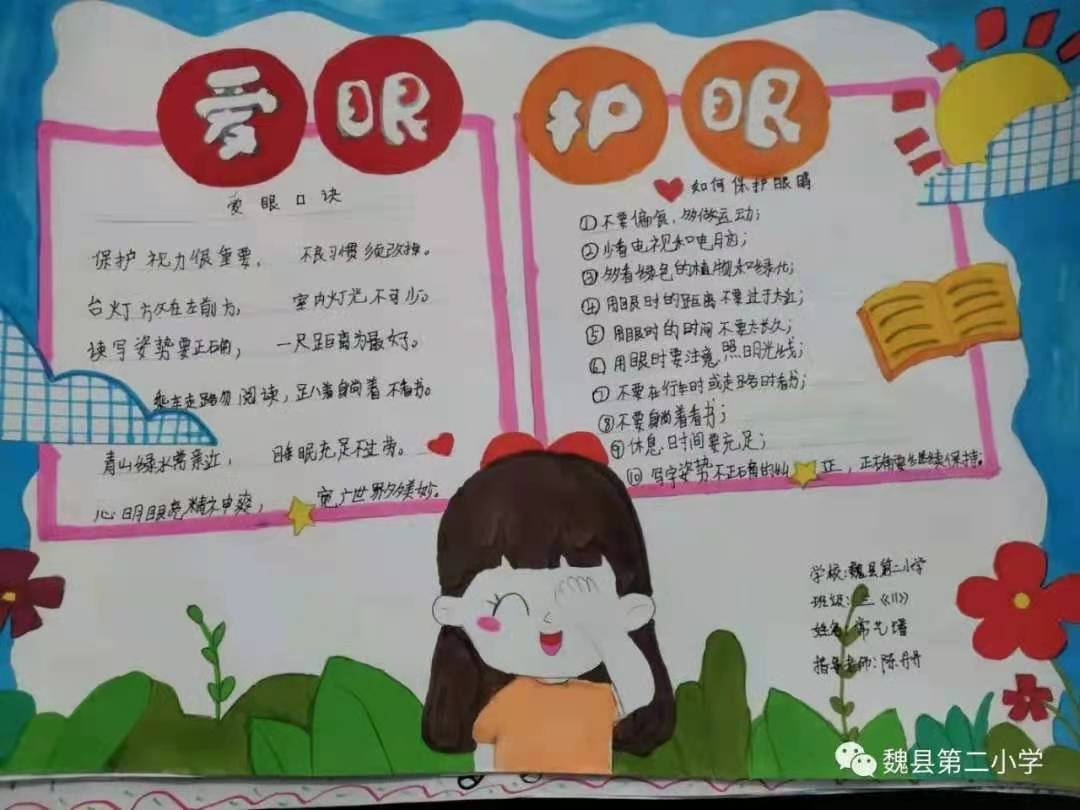 爱眼护眼
爱眼口诀
保护视力很重要， 不良习惯须改掉。
台灯放在左前方， 室内灯光不可少。
读写姿势要正确， 一尺距离为最好。
乘车走路勿阅读，足八着躺着不看书。
青山绿水常亲近， 睡眠充足不过劳。
心明眼亮精神爽， 宽广世界多美妙。
如何保护眼睛
①不要偏食，多做运动；
②少看电视和电脑；
③多看绿色的植物和绿化；
④用眼时的距离不要过于太近；
⑤用眼时的时间不要太长久；
⑥用眼时要注意照明光线；
⑦不要在行车时或走路时看书；
⑧不要躺着看书；
⑨休息时间要充足；
⑩写字姿势不正确的 正，正确要继续保持。
学校：魏县第二小学
班级：三《11》
姓名：常艺
指导老师：陈丹丹
魏县第二小学